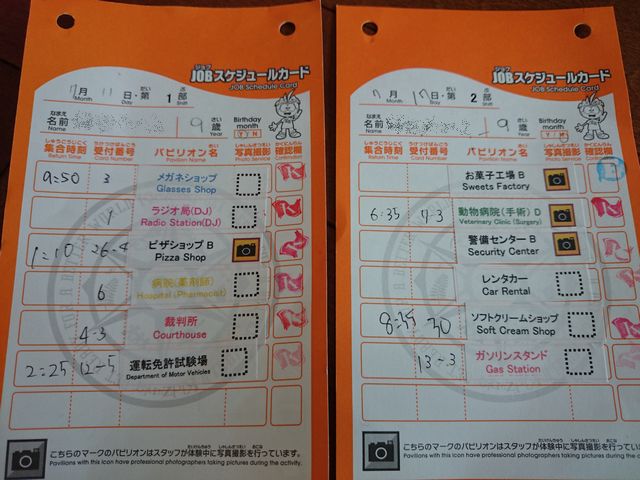 ジョブ
JOBスケジュールカード
JOB Schedule Card
7月 11日・第 1部
Month Day Shift
なまえ
名前
Name
9歳
Year
Birthday month
Y N
しゅうごうじこく うけつけばんごう しゃしんさつえい かくにんらん
集合時刻 受付番号 パビリオン名 写真撮影 確認欄
Return Time Card Number Pavilion Name Photo Service Confirmation
9:50 3 メガネショップ
Glasses Shop
ラジオ局(DJ)
Radio Station(DJ)
1:10 26-4 ピザショップ B
Pizza Shop
6 病院(薬剤師)
Hospital (Pharmacist)
4-3 裁判所
Courthouse
2:25 12-5 運転免許試験場
Department of Motor Vehicles
こちらのマークのパビリオンはスタッフが体験中に写真撮影を行っています。
Pavilions with this icon have professional photographers taking pictures during the activity.
ジョブ
JOBスケジュールカード
JOB Schedule Card
7月 17日・第 2部
Month Day Shift
なまえ
名前
Name
9歳
Year
Birthday month
Y N
しゅうごうじこく うけつけばんごう しゃしんさつえい かくにんらん
集合時刻 受付番号 パビリオン名 写真撮影 確認欄
Return Time Card Number Pavilion Name Photo Service Confirmation
お菓子工場 B
Sweets Factory
6:35 7-3 動物病院(手術) D
Veterinary Clinic (Surgery)
警備センター B
Security Center
レンタカー
Car Rental
8:35 30 ソフトクリームショップ
Soft Cream Shop
13-3 ガソリンスタンド
Gas Station
こちらのマークのパビリオンはスタッフが体験中に写真撮影を行っています。
Pavilions with this icon have professional photographers taking pictures during the activity.